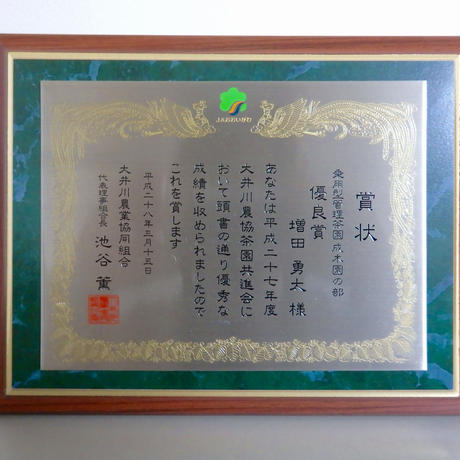 JAおおいがわ
賞状
乗用型管理茶園 成木園の部
優良賞
増田 勇太 様
あなたは平成二十七年度
大井川農協茶園共進会に
おいて頭書の通り優秀な
成績を収められましたので
これを賞します
平成二十八年三月十五日
大井川農業協同組合
代表理事組合長 池谷 薫